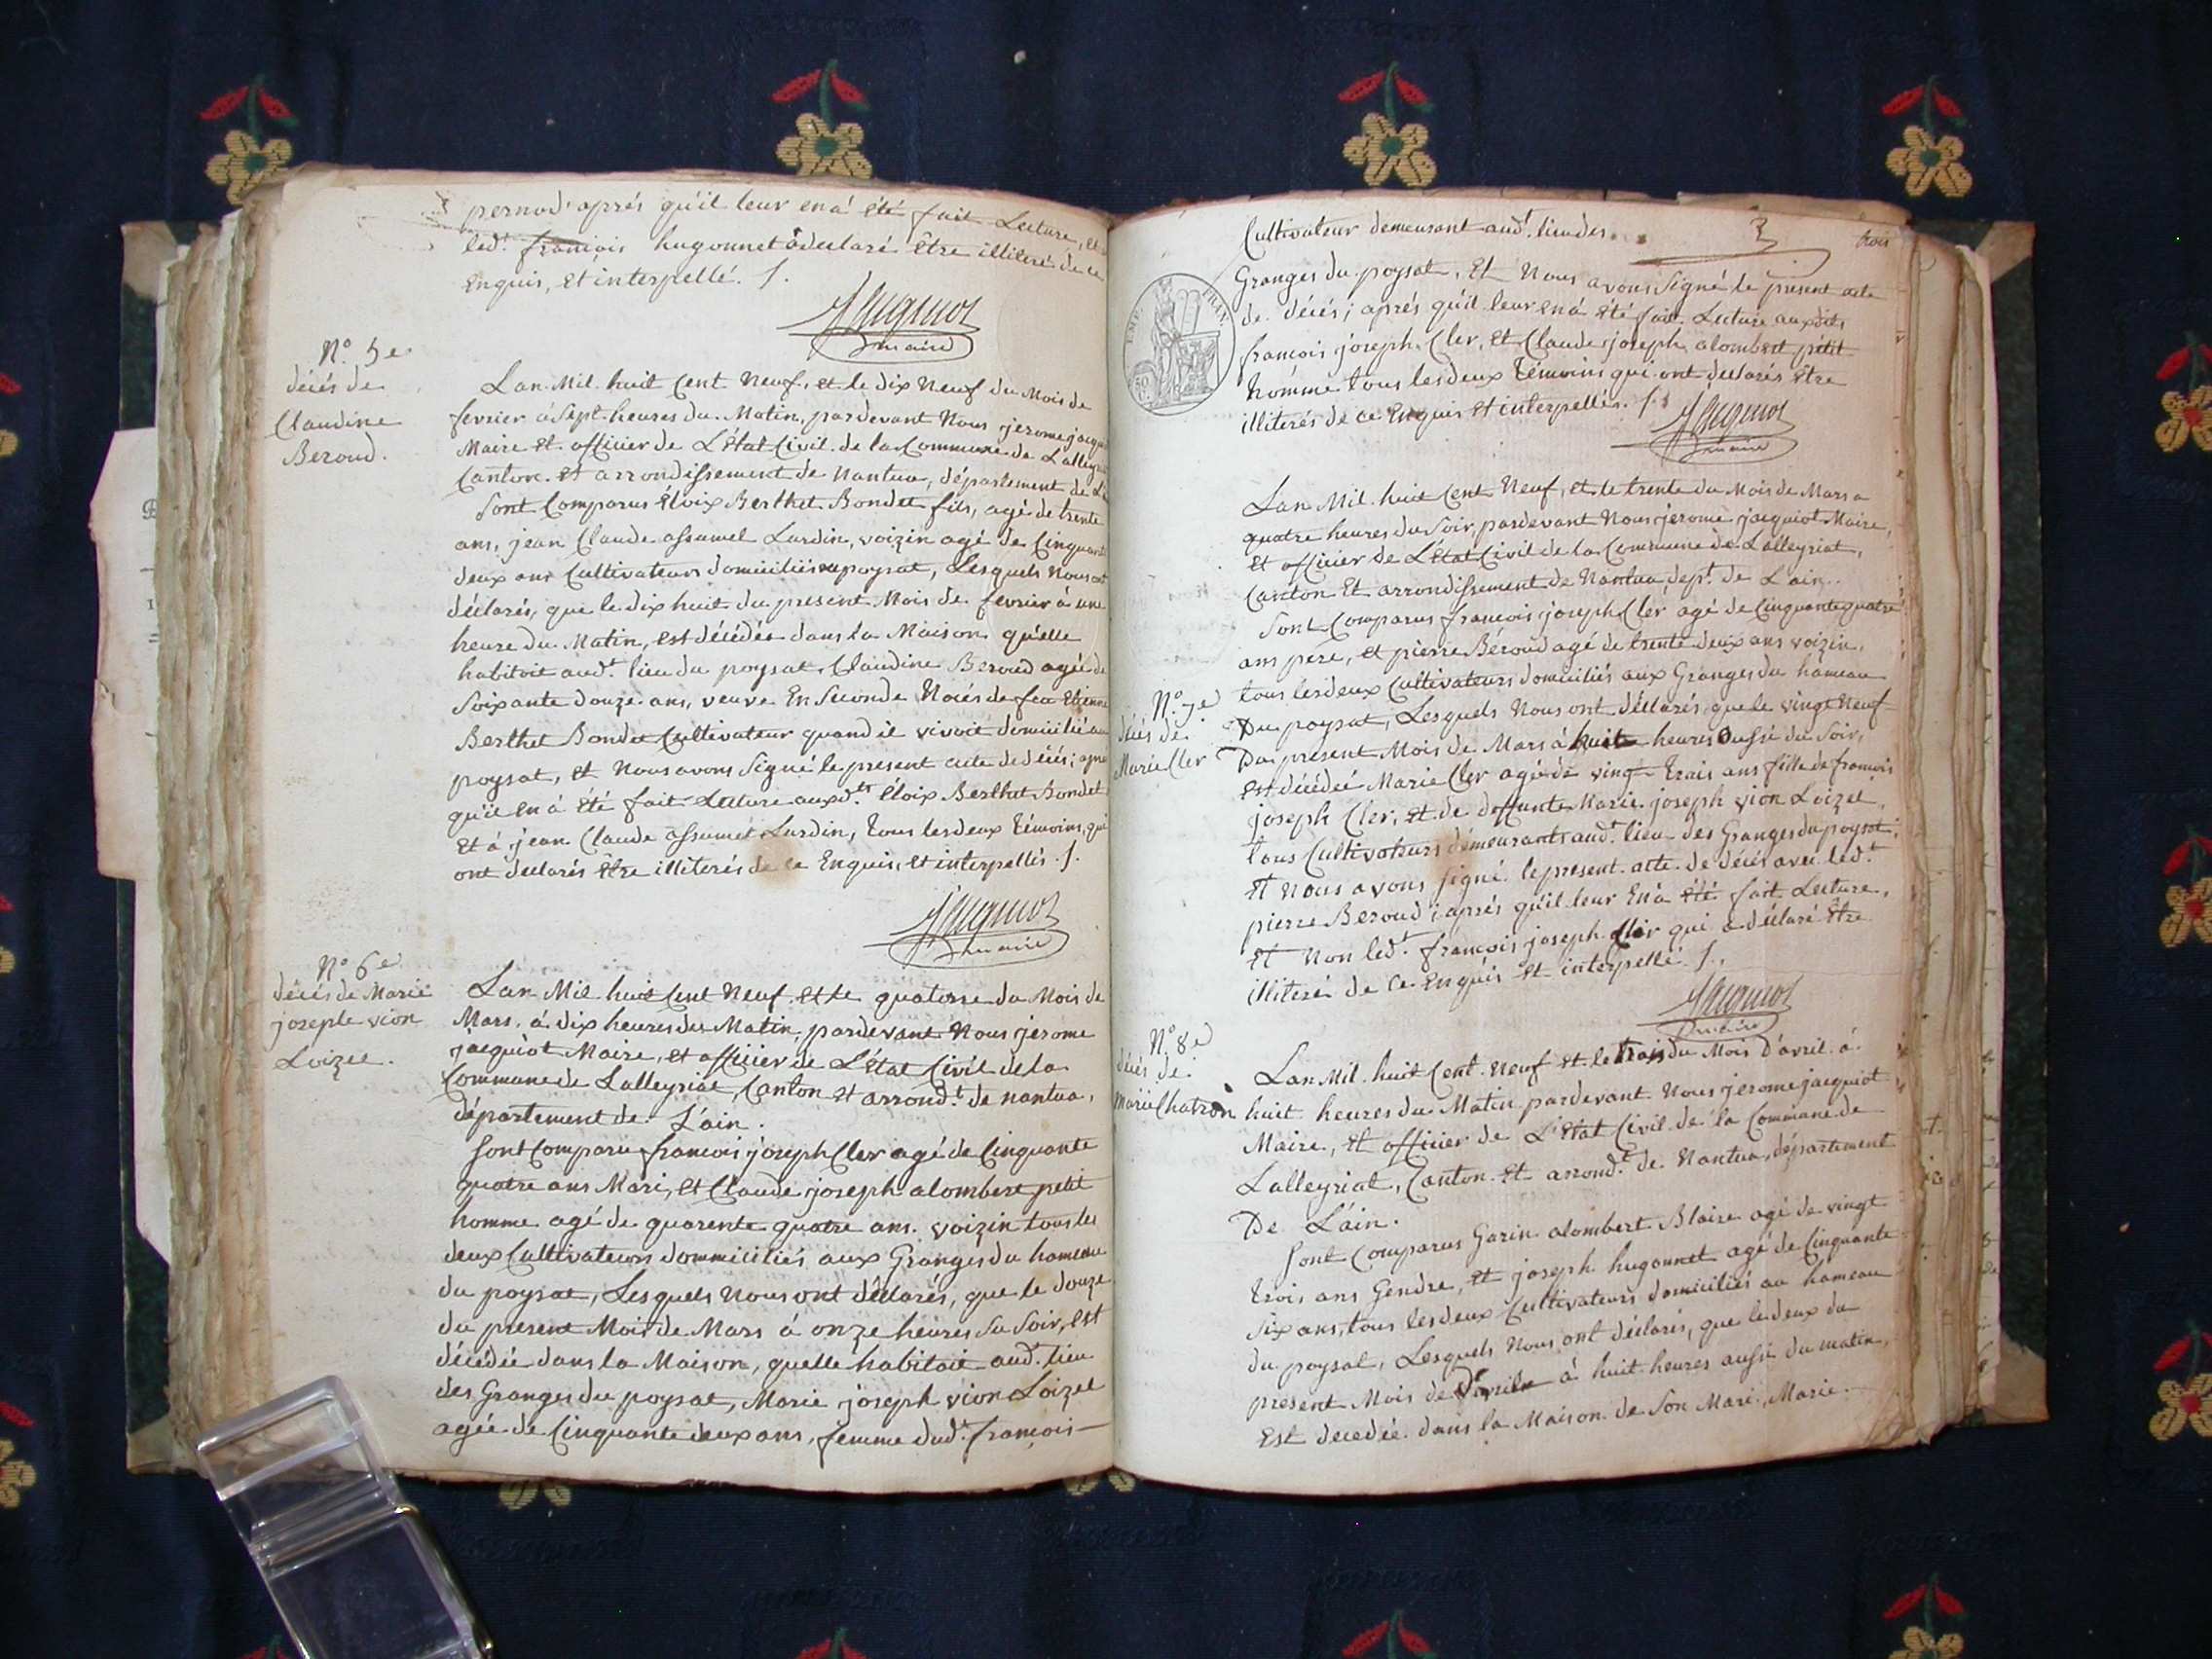 pernod' aprés qu'il leur en á été fait Lecture, et
led.t francois hugonnet á declaré Être illiteré de ce
Enquis, et interpellé. /.
Jacquiot
maire
N.o 5e
décés de
Claudine
Beroud.
Lan Mil huit Cent Neuf, et le dix Neuf du Mois de
fevrier á Sept heures du Matin, pardevant Nous jerome jacquiot
Maire et officier de L'état Civil de la Commune de Lalleyriat
Canton et arrondissement de Nantua, département de L'ain
Sont Comparus Éloix Berthet Bondet fils, agé de trente
ans, jean Claude assumel Lurdin, voizin agé de Cinquante
deux ans Cultivateurs domiciliés au poysat, Lesquels Nous ont
déclarés, que le dix huit du present Mois de fevrier á une
heure du Matin, est décédée dans la Maison qu'elle
habitoit aud.t lieu du poysat, Claudine Beroud agée de
Soixante douze ans, veuve En Seconde Nocés de feu Etienne
Berthet Bondet Cultivateur quand il vivoit domicilié au
poysat, et Nous avons Signé le present acte de décés; aprés
qu'il en á été fait Lecture auxd.ts Éloix Berthet Bondet
Et á jean Claude assumel Lurdin, tous les deux témoins, qui
ont declarés Être illiterés de ce Enquis, et interpellés. /.
Jacquiot
maire
N.o 6e
décés de Marie
joseple vion
Loizel.
Lan Mil huit Cent Neuf et le quatorse du Mois de
Mars, á dix heures du Matin, pardevant Nous jerome
jacquiot Maire, et officier de L'état Civil de la
Commune de Lalleyriat, Canton et arrond.t de nantua,
département de L'ain.
Sont Comparu francois joseph Cler agé de Cinquante
quatre ans Mari, et Claude joseph alombert petit
homme agé de quarente quatre ans voizin tous les
deux Cultivateurs dommiciliés aux Granges du hameau
du poysat, Lesquels Nous ont déclarés, que le douze
du present Mois de Mars á onze heures du Soir, est
décédée dans la Maison, quelle habitoit aud.t lieu
des Granges du poysat, Marie joseph vion Loizel
agée de Cinquante deux ans, femme dud.t françois —
Cultivateur demeurant aud.t lieu des 3 trois
EMP. FRAN.
50 C.
Granges du poysat, Et Nous avons Signé le present acte
de décés; aprés qu'il leur en á été fait Lecture auxdits
francois joseph Cler, et Claude joseph alombert petit
homme tous les deux témoins qui ont declarés être
illiterés de ce Enquis et interpellés. /.
Jacquiot
maire
Lan Mil huit Cent Neuf, et le trente du Mois de Mars a
quatre heures du Soir, pardevant Nous jerome jacquiot Maire,
et officier de L'état Civil de la Commune de Lalleyriat,
Canton Et arrondissement de Nantua, dep.t de L'ain.
Sont Comparus francois joseph Cler agé de Cinquante quatre
ans pére, et pierre Béroud agé de trente deux ans voizin,
tous les deux Cultivateurs domiciliés aux Granges du hameau
N.o 7e
décés de
Marie Cler
Du poysat, Lesquels Nous ont déclarés que le vingt Neuf
Du present Mois de Mars á huit heures aussi du Soir,
est décédée Marie Cler agée de vingt trois ans fille de francois
joseph Cler, et de deffunte Marie joseph vion Loizel,
tous Cultivateurs démeurants aud.t lieu des Granges du poysat;
et Nous avons signé le present acte de décés avec led.t
pierre Beroud; aprés qu'il leur En á été fait Lecture,
et Non led.t francois joseph Cler qui á déclaré être
illiteré de Ce Enquis et interpellé /.
Jacquiot
maire
N.o 8e
décés de
Marie Chatron
Lan Mil huit Cent Neuf et le trois du Mois D'avril á
huit heures du Matin pardevant Nous jerome jacquiot
Maire, et officier de L'état Civil de la Commune de
Lalleyriat, Canton Et arrond.t de Nantua, département
De L'ain.
Sont Comparus Garin alombert Blaise agé de vingt
trois ans Gendre, et joseph hugonnet agé de Cinquante
Six ans, tous les deux Cultivateurs domiciliés au hameau
du poysat, Lesquels Nous ont déclarés, que le deux du
present Mois de D'avril á huit heures aussi du matin,
Est decedée dans la Maison de Son Mari, Marie